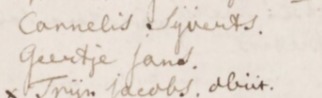 Cornelis Sÿverts.
Geertje Jans.
x Trijn jacobs. obiit.